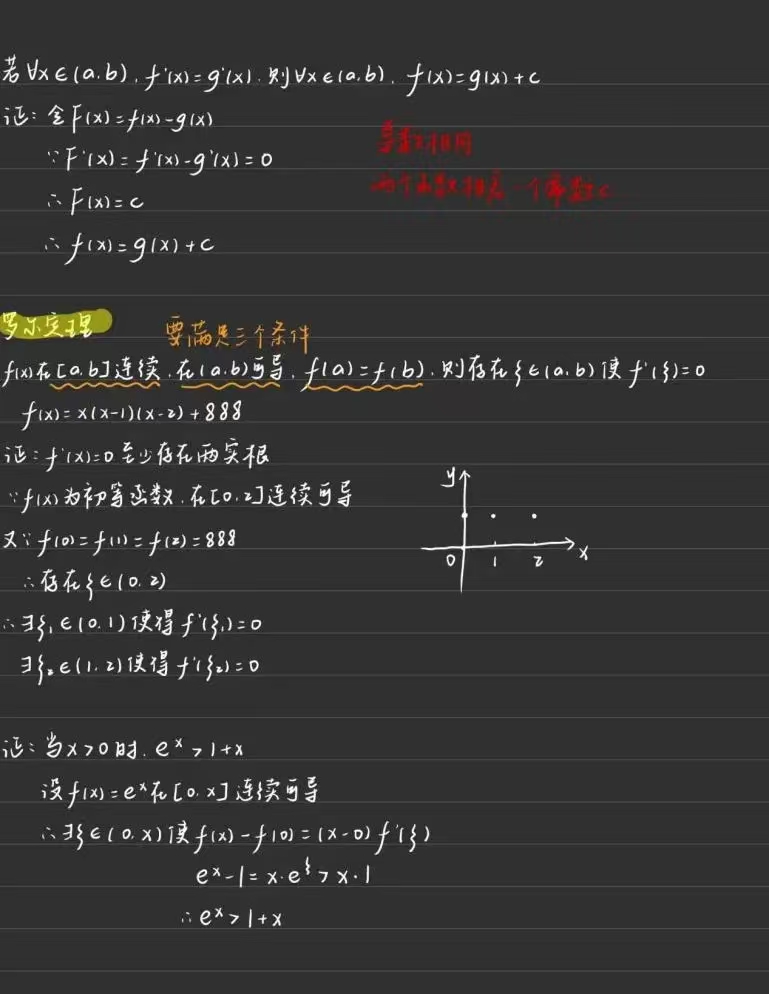 若∀x∈(a,b),f'(x)=g'(x),则∀x∈(a,b),f(x)=g(x)+c
证:令F(x)=f(x)-g(x)
∵F'(x)=f'(x)-g'(x)=0
导数相同
∴F(x)=c
两个函数相差一个常数c
∴f(x)=g(x)+c
罗尔定理
要满足三个条件
f(x)在[a,b]连续,在(a,b)可导,f(a)=f(b),则存在ξ∈(a,b)使f'(ξ)=0
f(x)=x(x-1)(x-2)+888
证:f'(x)=0至少存在两实根
∵f(x)为初等函数,在[0,2]连续可导
又∵f(0)=f(1)=f(2)=888
∴存在ξ∈(0,2)
∴∃ξ₁∈(0,1)使得f'(ξ₁)=0
∃ξ₂∈(1,2)使得f'(ξ₂)=0
y
0 1 2 x
证:当x>0时,eˣ>1+x
设f(x)=eˣ在[0,x]连续可导
∴∃ξ∈(0,x)使f(x)-f(0)=(x-0)f'(ξ)
eˣ-1=x·e^ξ>x·1
∴eˣ>1+x